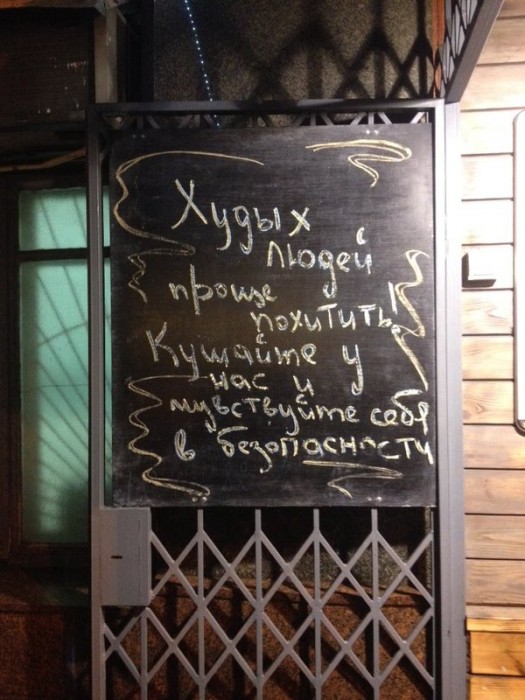 Худых
людей
проще
похитить!
Кушайте у
нас и
чувствуйте себя
в безопасности